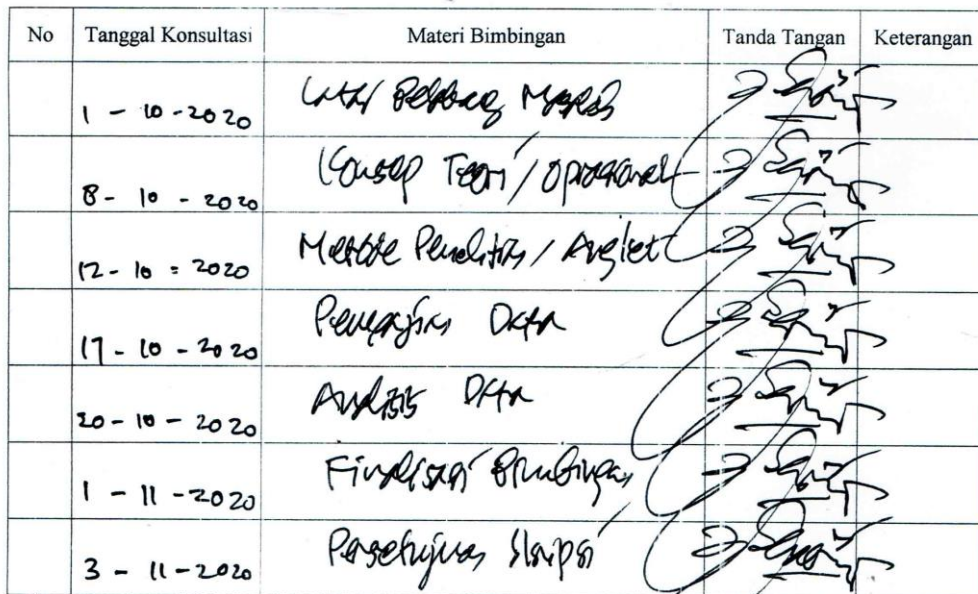 No Tanggal Konsultasi Materi Bimbingan Tanda Tangan Keterangan
1 - 10 - 2020 Latar Belakang Masalah
8 - 10 - 2020 Konsep Teori / Oprasional
12 - 10 - 2020 Metode Penelitian / Angket
17 - 10 - 2020 Penyajian Data
20 - 10 - 2020 Analisis Data
1 - 11 - 2020 Finalisasi Bimbingan
3 - 11 - 2020 Persetujuan Skripsi